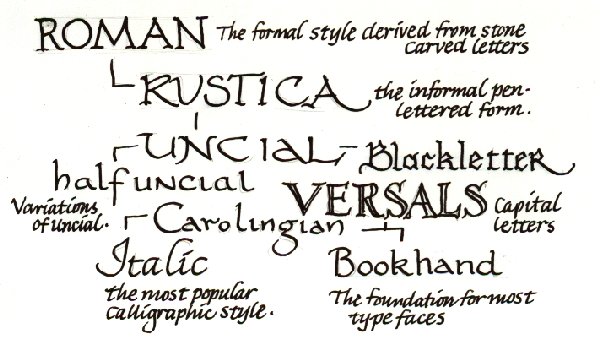 ROMAN The formal style derived from stone
carved letters
RUSTICA the informal pen-
lettered form.
UNCIAL Blackletter
halfuncial VERSALS Capital
letters
Variations
of uncial.
Carolingian
Italic Bookhand
the most popular
calligraphic style.
The foundation for most
type faces